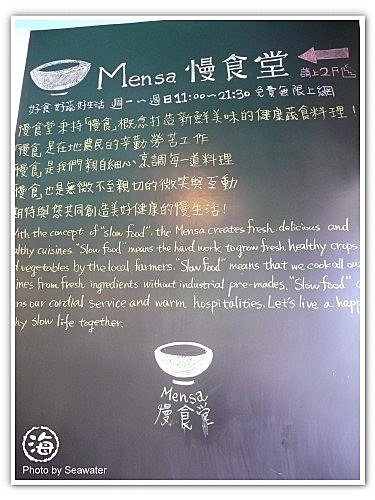 Mensa 慢食堂 請上2F
好食 好蔬 好生活 週一～週日11:00～21:30 免費無限上網
慢食堂秉持「慢食」概念打造新鮮美味的健康蔬食料理!
慢食是在地農民的辛勤勞苦工作
慢食是我們親自細心烹調每一道料理
慢食也是無微不至親切的微笑與互動
期待與您共同創造美好健康的慢生活!
ith the concept of "slow food", the Mensa creates fresh, delicious and
lthy cuisines "Slow food" means the hard work to grow fresh healthy crops
d vegetables by the local farmers. "Slow food" means that we cook all ou
ines from fresh ingredients without industrial pre-mades. "Slow food"
ns our cordial service and warm hospitalities. Let's live a happ
hy slow life together.
Mensa
慢食堂
海
Photo by Seawater